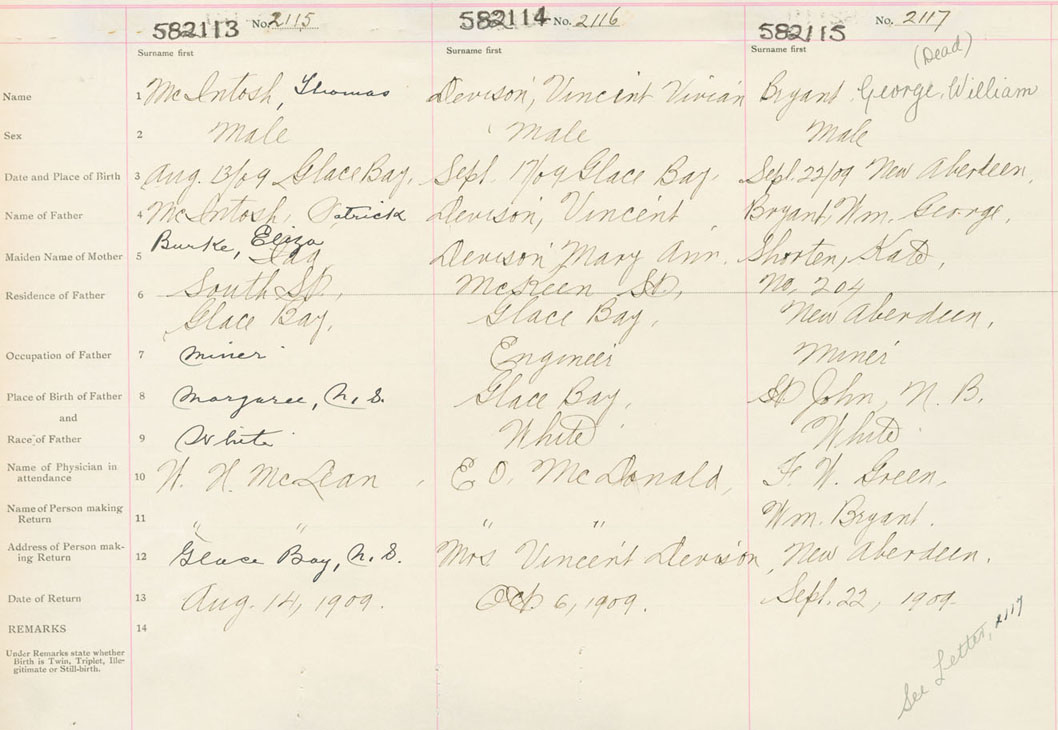 582113 No. 2115
582114 No. 2116
582115 No. 2117
Surname first
Surname first
Surname first
(Dead)
Name 1 McIntosh, Thomas
Devison, Vincent Vivian
Bryant George, William
Sex 2 Male
Male
Male
Date and Place of Birth 3 Aug. 13/09 Glace Bay,
Sept. 17/09 Glace Bay,
Sept. 22/09 New Aberdeen,
Name of Father 4 McIntosh, Patrick
Devison, Vincent
Bryant, Wm. George,
Burke, Eliza
Maiden Name of Mother 5 Ida
Devison Mary Ann.
Shorten, Kate,
Residence of Father 6 South St.,
McKeen St,
No. 204
Glace Bay,
Glace Bay,
New Aberdeen,
Occupation of Father 7 Miner
Engineer
Miner
Place of Birth of Father 8 Margaree, N.S.
Glace Bay,
St John, N. B.
and
Race of Father 9 White
White
White
Name of Physician in
attendance 10 W. H. McLean
E O. McDonald,
F. W. Green,
Name of Person making
Return 11 " "
" "
Wm. Bryant.
Address of Person mak-
ing Return 12 Glace Bay, N.S.
Mrs Vincent Devison,
New Aberdeen.
Date of Return 13 Aug. 14, 1909.
Oct 6, 1909.
Sept. 22, 1909.
REMARKS 14
Under Remarks state whether
Birth is Twin, Triplet, Ille-
gitimate or Still-birth.
See Letter, 2117